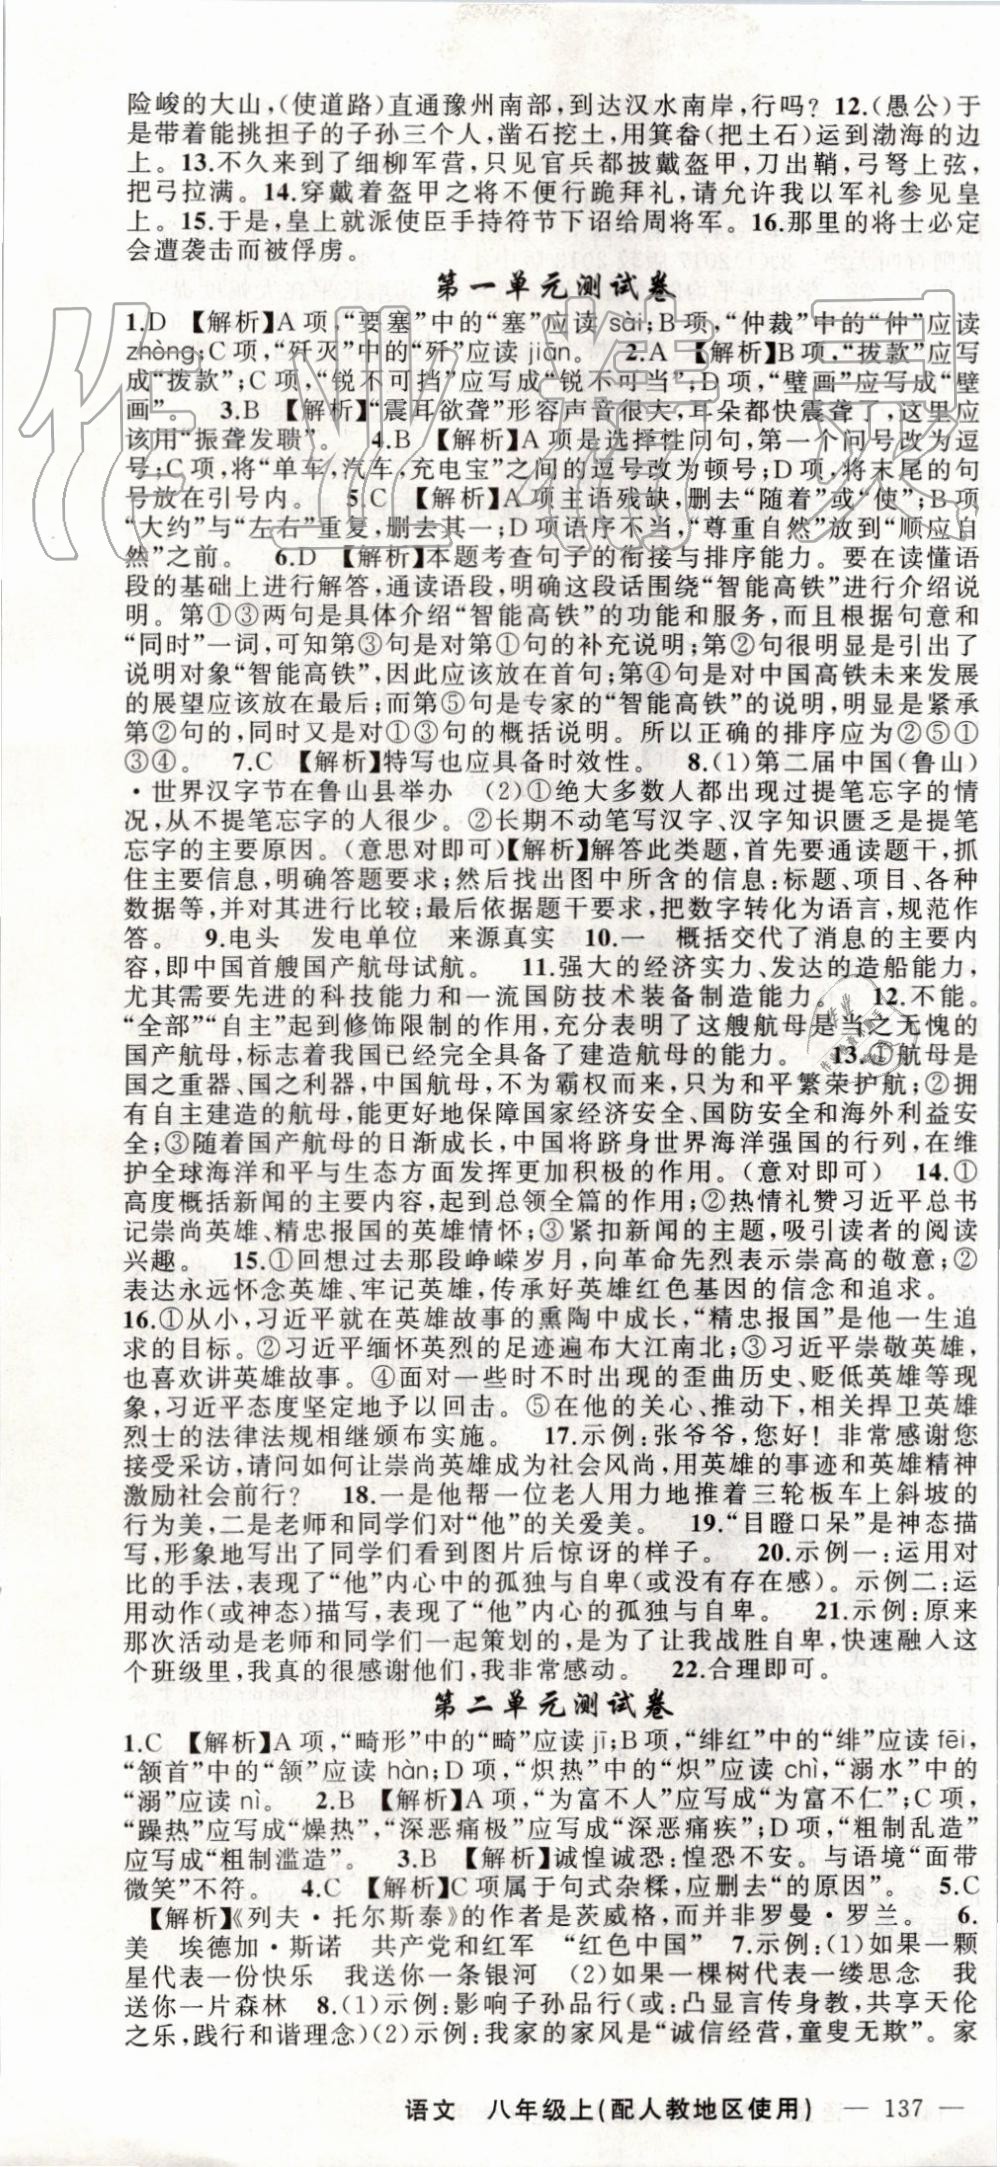 险峻的大山,(使道路)直通豫州南部,到达汉水南岸,行吗? 12.(愚公)于
是带着能挑担子的子孙三个人,凿石挖土,用箕畚(把土石)运到渤海的边
上。 13.不久来到了细柳军营,只见官兵都披戴盔甲,刀出鞘,弓弩上弦,
把弓拉满。 14.穿戴着盔甲之将不便行跪拜礼,请允许我以军礼参见皇
上。 15.于是,皇上就派使臣手持符节下诏给周将军。 16.那里的将士必定
会遭袭击而被俘虏。
第一单元测试卷
1.D 【解析】A项,“要塞”中的“塞”应读 sài;B项,“仲裁”中的“仲”应读
zhòng;C项,“歼灭”中的“歼”应读 jiān。 2.A 【解析】B项,“拨款”应写
成“拨款”;C项,“锐不可挡”应写成“锐不可当”;D项,“璧画”应写成“壁
画”。 3.B 【解析】“震耳欲聋”形容声音很大,耳朵都快震聋了,这里应
该用“振聋发聩”。 4.B 【解析】A项是选择性问句,第一个问号改为逗
号;C项,将“单车,汽车,充电宝”之间的逗号改为顿号;D项,将末尾的句
号放在引号内。 5.C 【解析】A项主语残缺,删去“随着”或“使”;B项
“大约”与“左右”重复,删去其一;D项语序不当,“尊重自然”放到“顺应自
然”之前。 6.D 【解析】本题考查句子的衔接与排序能力。要在读懂语
段的基础上进行解答,通读语段,明确这段话围绕“智能高铁”进行介绍说
明。第①③两句是具体介绍“智能高铁”的功能和服务,而且根据句意和
“同时”一词,可知第③句是对第①句的补充说明;第②句很明显是引出了
说明对象“智能高铁”,因此应该放在首句;第④句是对中国高铁未来发展
的展望应该放在最后;而第⑤句是专家的“智能高铁”的说明,明显是紧承
第②句的,同时又是对①③句的概括说明。所以正确的排序应为②⑤①
③④。 7.C 【解析】特写也应具备时效性。 8.(1)第二届中国(鲁山)
·世界汉字节在鲁山县举办 (2)①绝大多数人都出现过提笔忘字的情
况,从不提笔忘字的人很少。②长期不动笔写汉字、汉字知识匮乏是提笔
忘字的主要原因。(意思对即可)【解析】解答此类题,首先要通读题干,抓
住主要信息,明确答题要求;然后找出图中所含的信息:标题、项目、各种
数据等,并对其进行比较;最后依据题干要求,把数字转化为语言,规范作
答。 9.电头 发电单位 来源真实 10.一 概括交代了消息的主要内
容,即中国首艘国产航母试航。 11.强大的经济实力、发达的造船能力,
尤其需要先进的科技能力和一流国防技术装备制造能力。 12.不能。
“全部”“自主”起到修饰限制的作用,充分表明了这艘航母是当之无愧的
国产航母,标志着我国已经完全具备了建造航母的能力。 13.①航母是
国之重器、国之利器,中国航母,不为霸权而来,只为和平繁荣护航;②拥
有自主建造的航母,能更好地保障国家经济安全、国防安全和海外利益安
全;③随着国产航母的日渐成长,中国将跻身世界海洋强国的行列,在维
护全球海洋和平与生态方面发挥更加积极的作用。(意对即可) 14.①
高度概括新闻的主要内容,起到总领全篇的作用;②热情礼赞习近平总书
记崇尚英雄、精忠报国的英雄情怀;③紧扣新闻的主题,吸引读者的阅读
兴趣。 15.①回想过去那段峥嵘岁月,向革命先烈表示崇高的敬意;②
表达永远怀念英雄、牢记英雄,传承好英雄红色基因的信念和追求。
16.①从小,习近平就在英雄故事的熏陶中成长,“精忠报国”是他一生追
求的目标。②习近平缅怀英烈的足迹遍布大江南北;③习近平崇敬英雄,
也喜欢讲英雄故事。④面对一些时不时出现的歪曲历史、贬低英雄等现
象,习近平态度坚定地予以回击。⑤在他的关心、推动下,相关捍卫英雄
烈士的法律法规相继颁布实施。 17.示例:张爷爷,您好!非常感谢您
接受采访,请问如何让崇尚英雄成为社会风尚,用英雄的事迹和英雄精神
激励社会前行? 18.一是他帮一位老人用力地推着三轮板车上斜坡的
行为美,二是老师和同学们对“他”的关爱美。 19.“目瞪口呆”是神态描
写,形象地写出了同学们看到图片后惊讶的样子。 20.示例一:运用对
比的手法,表现了“他”内心中的孤独与自卑(或没有存在感)。示例二:运
用动作(或神态)描写,表现了“他”内心的孤独与自卑。 21.示例:原来
那次活动是老师和同学们一起策划的,是为了让我战胜自卑,快速融入这
个班级里,我真的很感谢他们,我非常感动。 22.合理即可。
第二单元测试卷
1.C 【解析】A项,“畸形”中的“畸”应读 jī;B项,“绯红”中的“绯”应读 fēi,
“颔首”中的“颔”应读 hàn;D项,“炽热”中的“炽”应读 chì,“溺水”中的
“溺”应读 nì。 2.B 【解析】A项,“为富不人”应写成“为富不仁”;C项,
“躁热”应写成“燥热”,“深恶痛极”应写成“深恶痛疾”;D项,“粗制乱造”
应写成“粗制滥造”。 3.B 【解析】诚惶诚恐:惶恐不安。与语境“面带
微笑”不符。 4.C 【解析】C项属于句式杂糅,应删去“的原因”。 5.C
【解析】《列夫·托尔斯泰》的作者是茨威格,而并非罗曼·罗兰。 6.
美 埃德加·斯诺 共产党和红军 “红色中国” 7.示例:(1)如果一颗
星代表一份快乐 我送你一条银河 (2)如果一棵树代表一缕思念 我
送你一片森林 8.(1)示例:影响子孙品行(或:凸显言传身教,共享天伦
之乐,践行和谐理念)(2)示例:我家的家风是“诚信经营,童叟无欺”。家
语文 八年级上(配人教地区使用) — 137 —